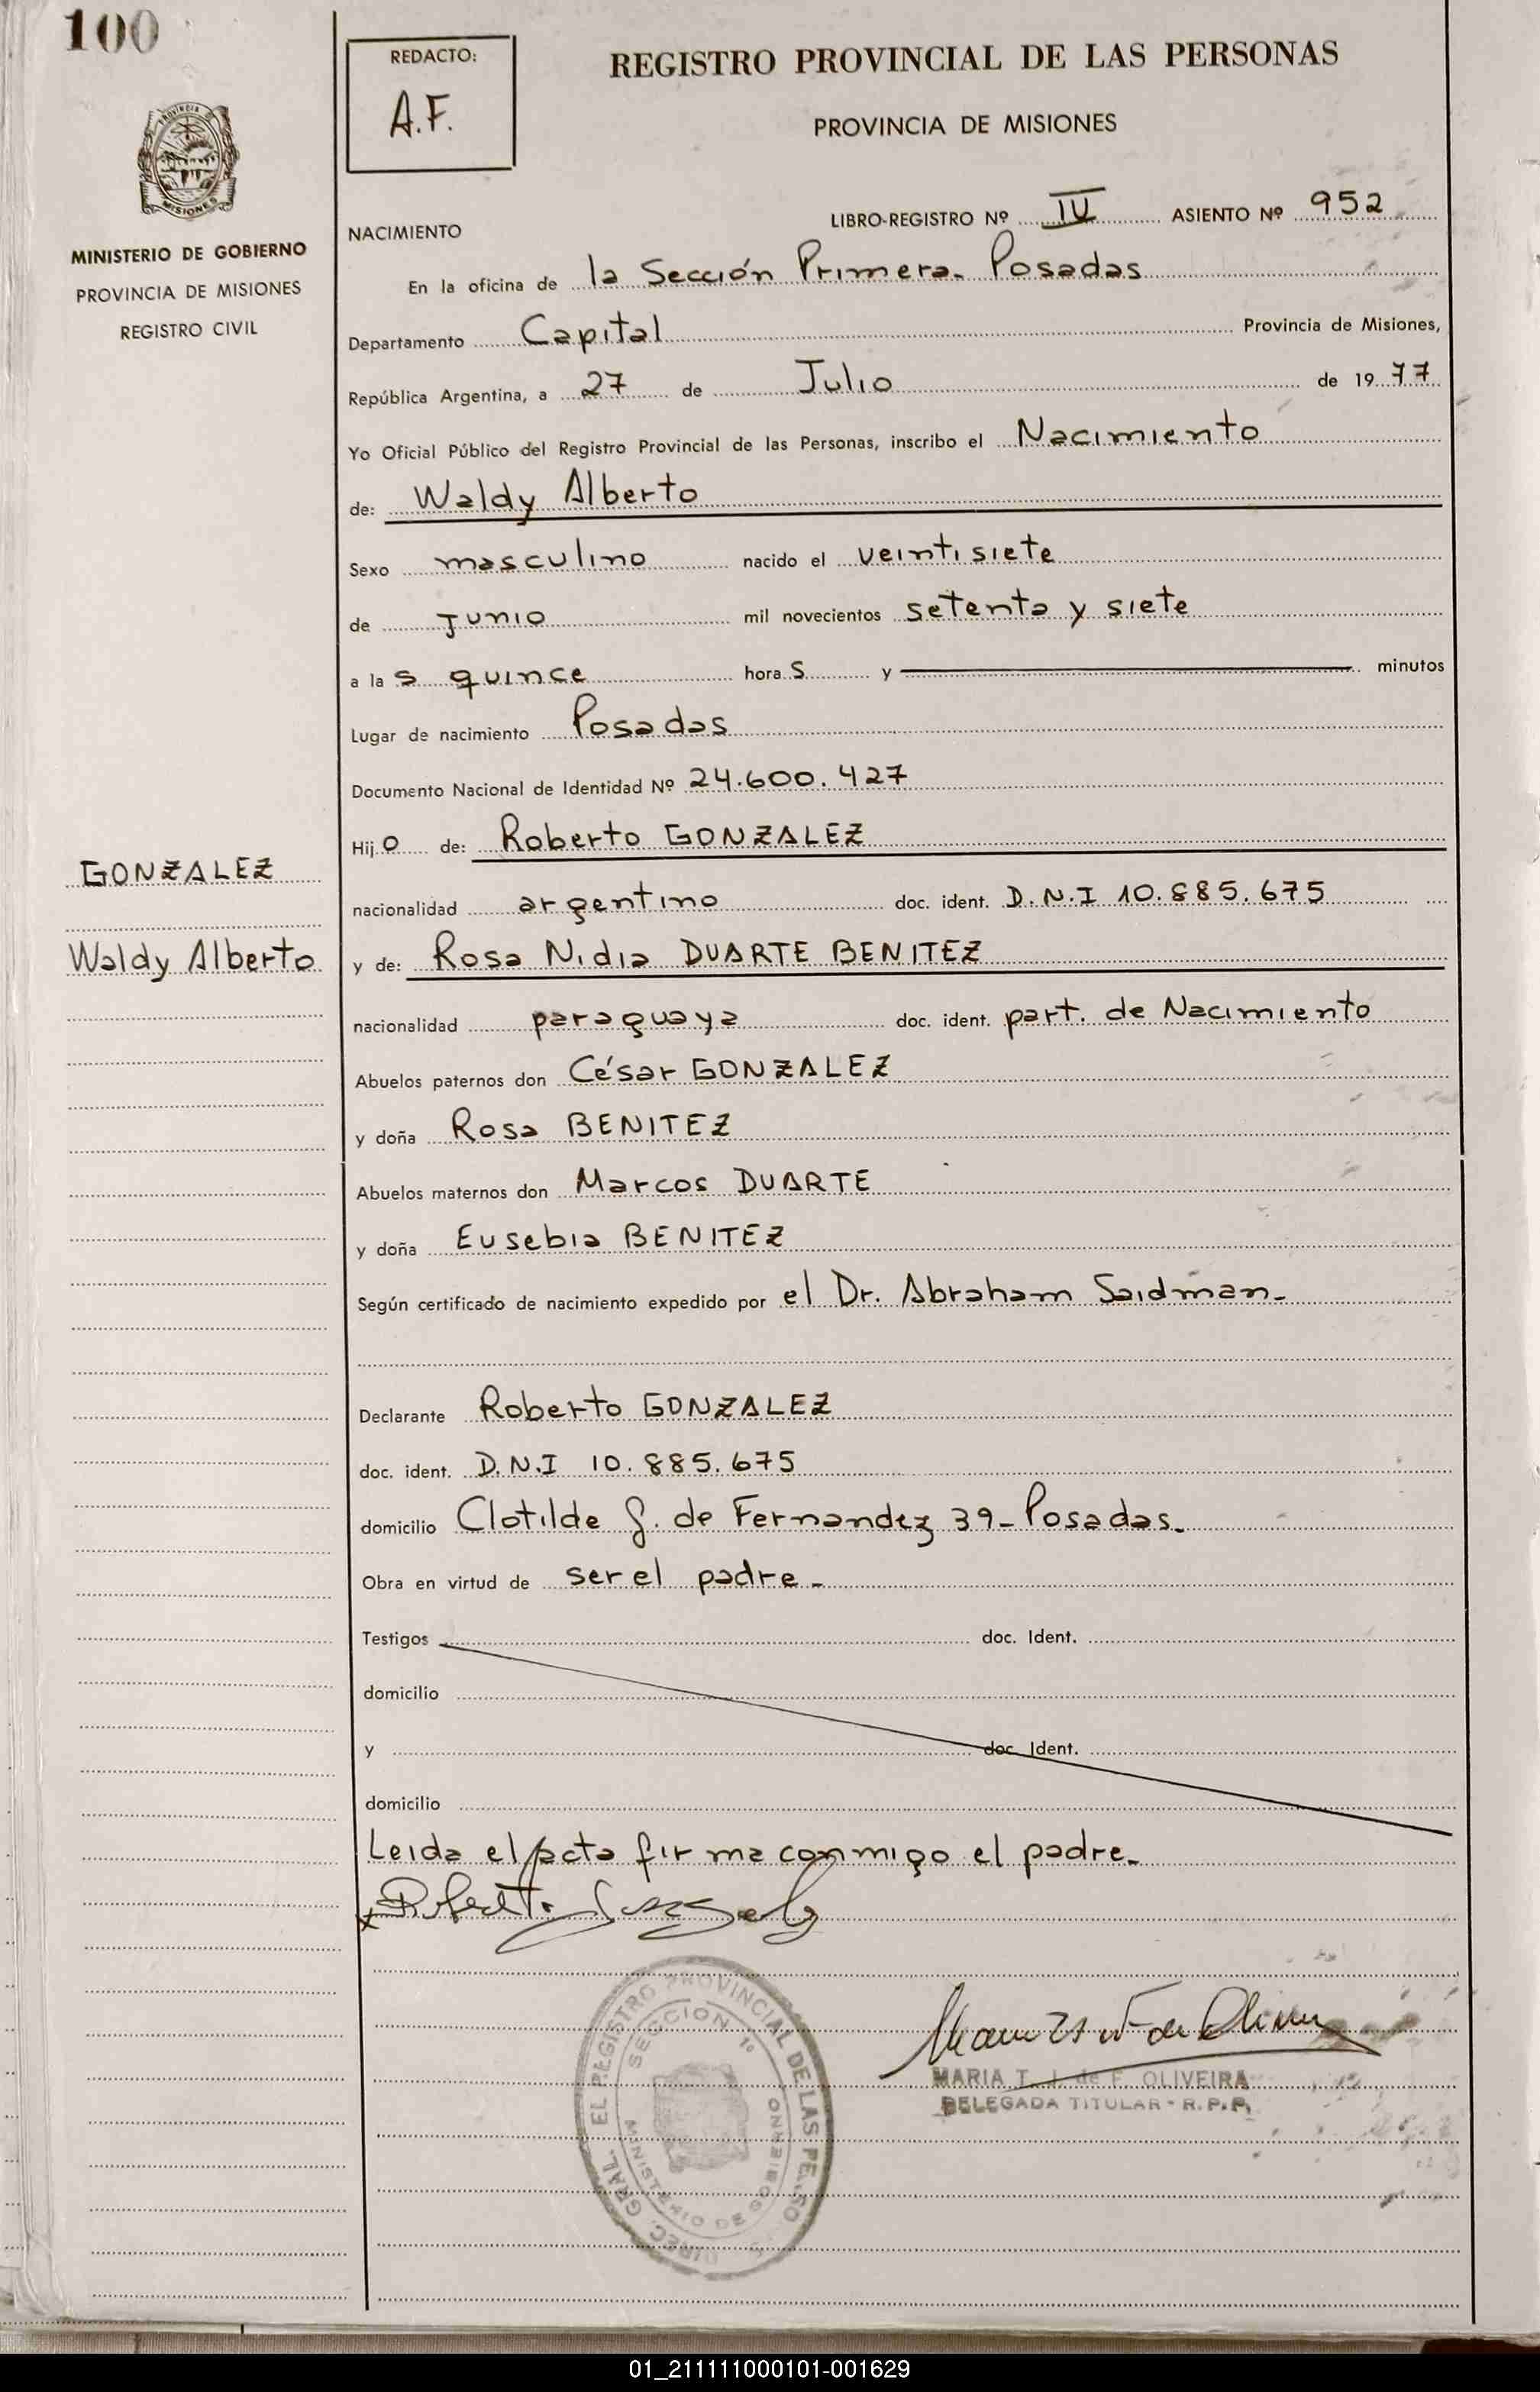 100
REDACTO:
A.F.
REGISTRO PROVINCIAL DE LAS PERSONAS
PROVINCIA DE MISIONES
PROVINCIA
MISIONES
MINISTERIO DE GOBIERNO
PROVINCIA DE MISIONES
REGISTRO CIVIL
LIBRO-REGISTRO Nº IV ASIENTO Nº 952
NACIMIENTO
En la oficina de la Sección Primera- Posadas
Departamento Capital Provincia de Misiones,
República Argentina, a 27 de Julio de 1977
Yo Oficial Público del Registro Provincial de las Personas, inscribo el Nacimiento
de: Waldy Alberto
Sexo masculino nacido el veintisiete
de Junio mil novecientos setenta y siete
a la s quince hora s y minutos
Lugar de nacimiento Posadas
Documento Nacional de Identidad Nº 24.600.427
Hijo de: Roberto GONZALEZ
GONZALEZ
nacionalidad argentino doc. ident. D.N.I 10.885.675
Waldy Alberto
y de: Rosa Nidia DUARTE BENITEZ
nacionalidad paraguaya doc. ident. part. de Nacimiento
Abuelos paternos don César GONZALEZ
y doña Rosa BENITEZ
Abuelos maternos don Marcos DUARTE
y doña Eusebia BENITEZ
Según certificado de nacimiento expedido por el Dr. Abraham Saidman-
Declarante Roberto GONZALEZ
doc. ident. D.N.I 10.885.675
domicilio Clotilde G. de Fernandez 39- Posadas.
Obra en virtud de ser el padre-
Testigos doc. Ident.
domicilio
y doc. Ident.
domicilio
Leida el acta firma conmigo el padre-
x Roberto Gonzalez
DIREC. GRAL. EL REGISTRO PROVINCIAL DE LAS PERSO
SECCION 1º
MINISTERIO DE GOBIERNO
MARIA T. J. de F. OLIVEIRA
DELEGADA TITULAR - R.P.P.
01_211111000101-001629